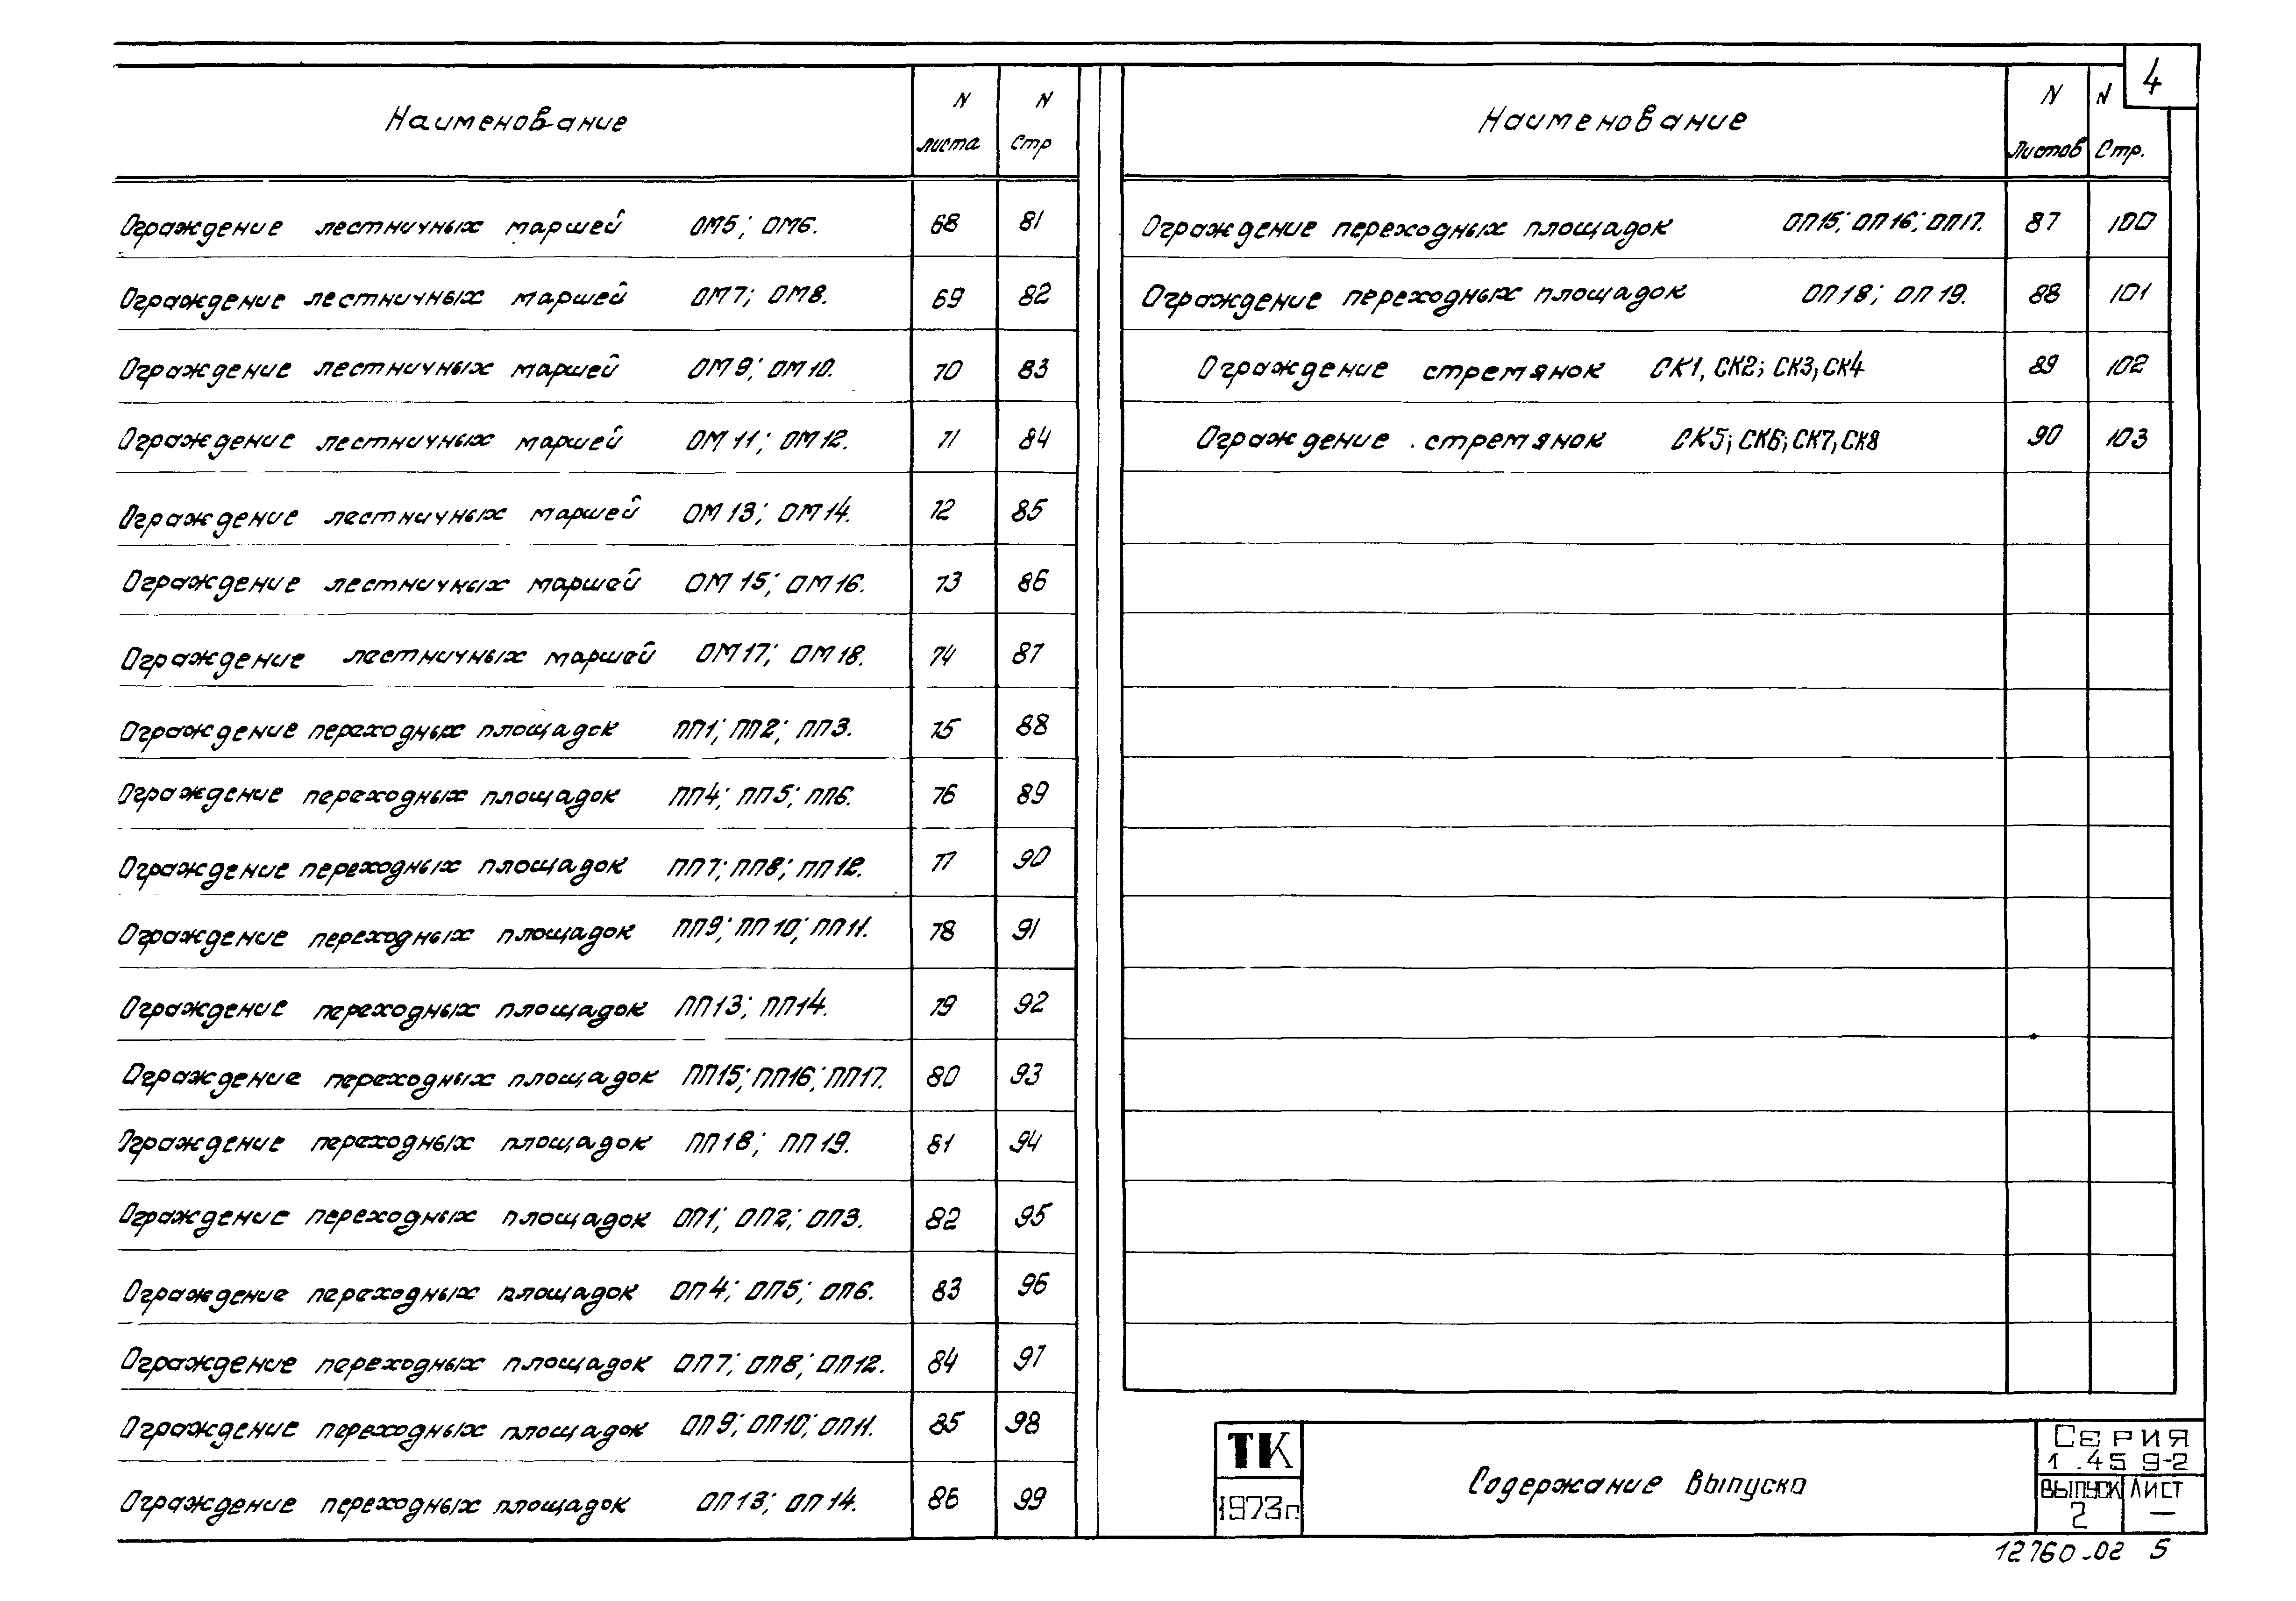 4
Наименование N листа N Стр
Ограждение лестничных маршей ОМ5; ОМ6. 68 81
Ограждение лестничных маршей ОМ7; ОМ8. 69 82
Ограждение лестничных маршей ОМ9; ОМ10. 70 83
Ограждение лестничных маршей ОМ11; ОМ12. 71 84
Ограждение лестничных маршей ОМ13; ОМ14. 72 85
Ограждение лестничных маршей ОМ15; ОМ16. 73 86
Ограждение лестничных маршей ОМ17; ОМ18. 74 87
Ограждение переходных площадок ПП1; ПП2; ПП3. 75 88
Ограждение переходных площадок ПП4; ПП5; ПП6. 76 89
Ограждение переходных площадок ПП7; ПП8; ПП12. 77 90
Ограждение переходных площадок ПП9; ПП10; ПП11. 78 91
Ограждение переходных площадок ПП13; ПП14. 79 92
Ограждение переходных площадок ПП15; ПП16; ПП17. 80 93
Ограждение переходных площадок ПП18; ПП19. 81 94
Ограждение переходных площадок ОП1; ОП2; ОП3. 82 95
Ограждение переходных площадок ОП4; ОП5; ОП6. 83 96
Ограждение переходных площадок ОП7; ОП8; ОП12. 84 97
Ограждение переходных площадок ОП9; ОП10; ОП11. 85 98
Ограждение переходных площадок ОП13; ОП14. 86 99
Наименование N Листов N Стр.
Ограждение переходных площадок ОП15; ОП16; ОП17. 87 100
Ограждение переходных площадок ОП18; ОП19. 88 101
Ограждение стремянок СК1, СК2; СК3, СК4 89 102
Ограждение стремянок СК5; СК6; СК7, СК8 90 103
ТК
1973г.
Содержание выпуска
Серия
1.459-2
Выпуск Лист
2 —
12760-02 5